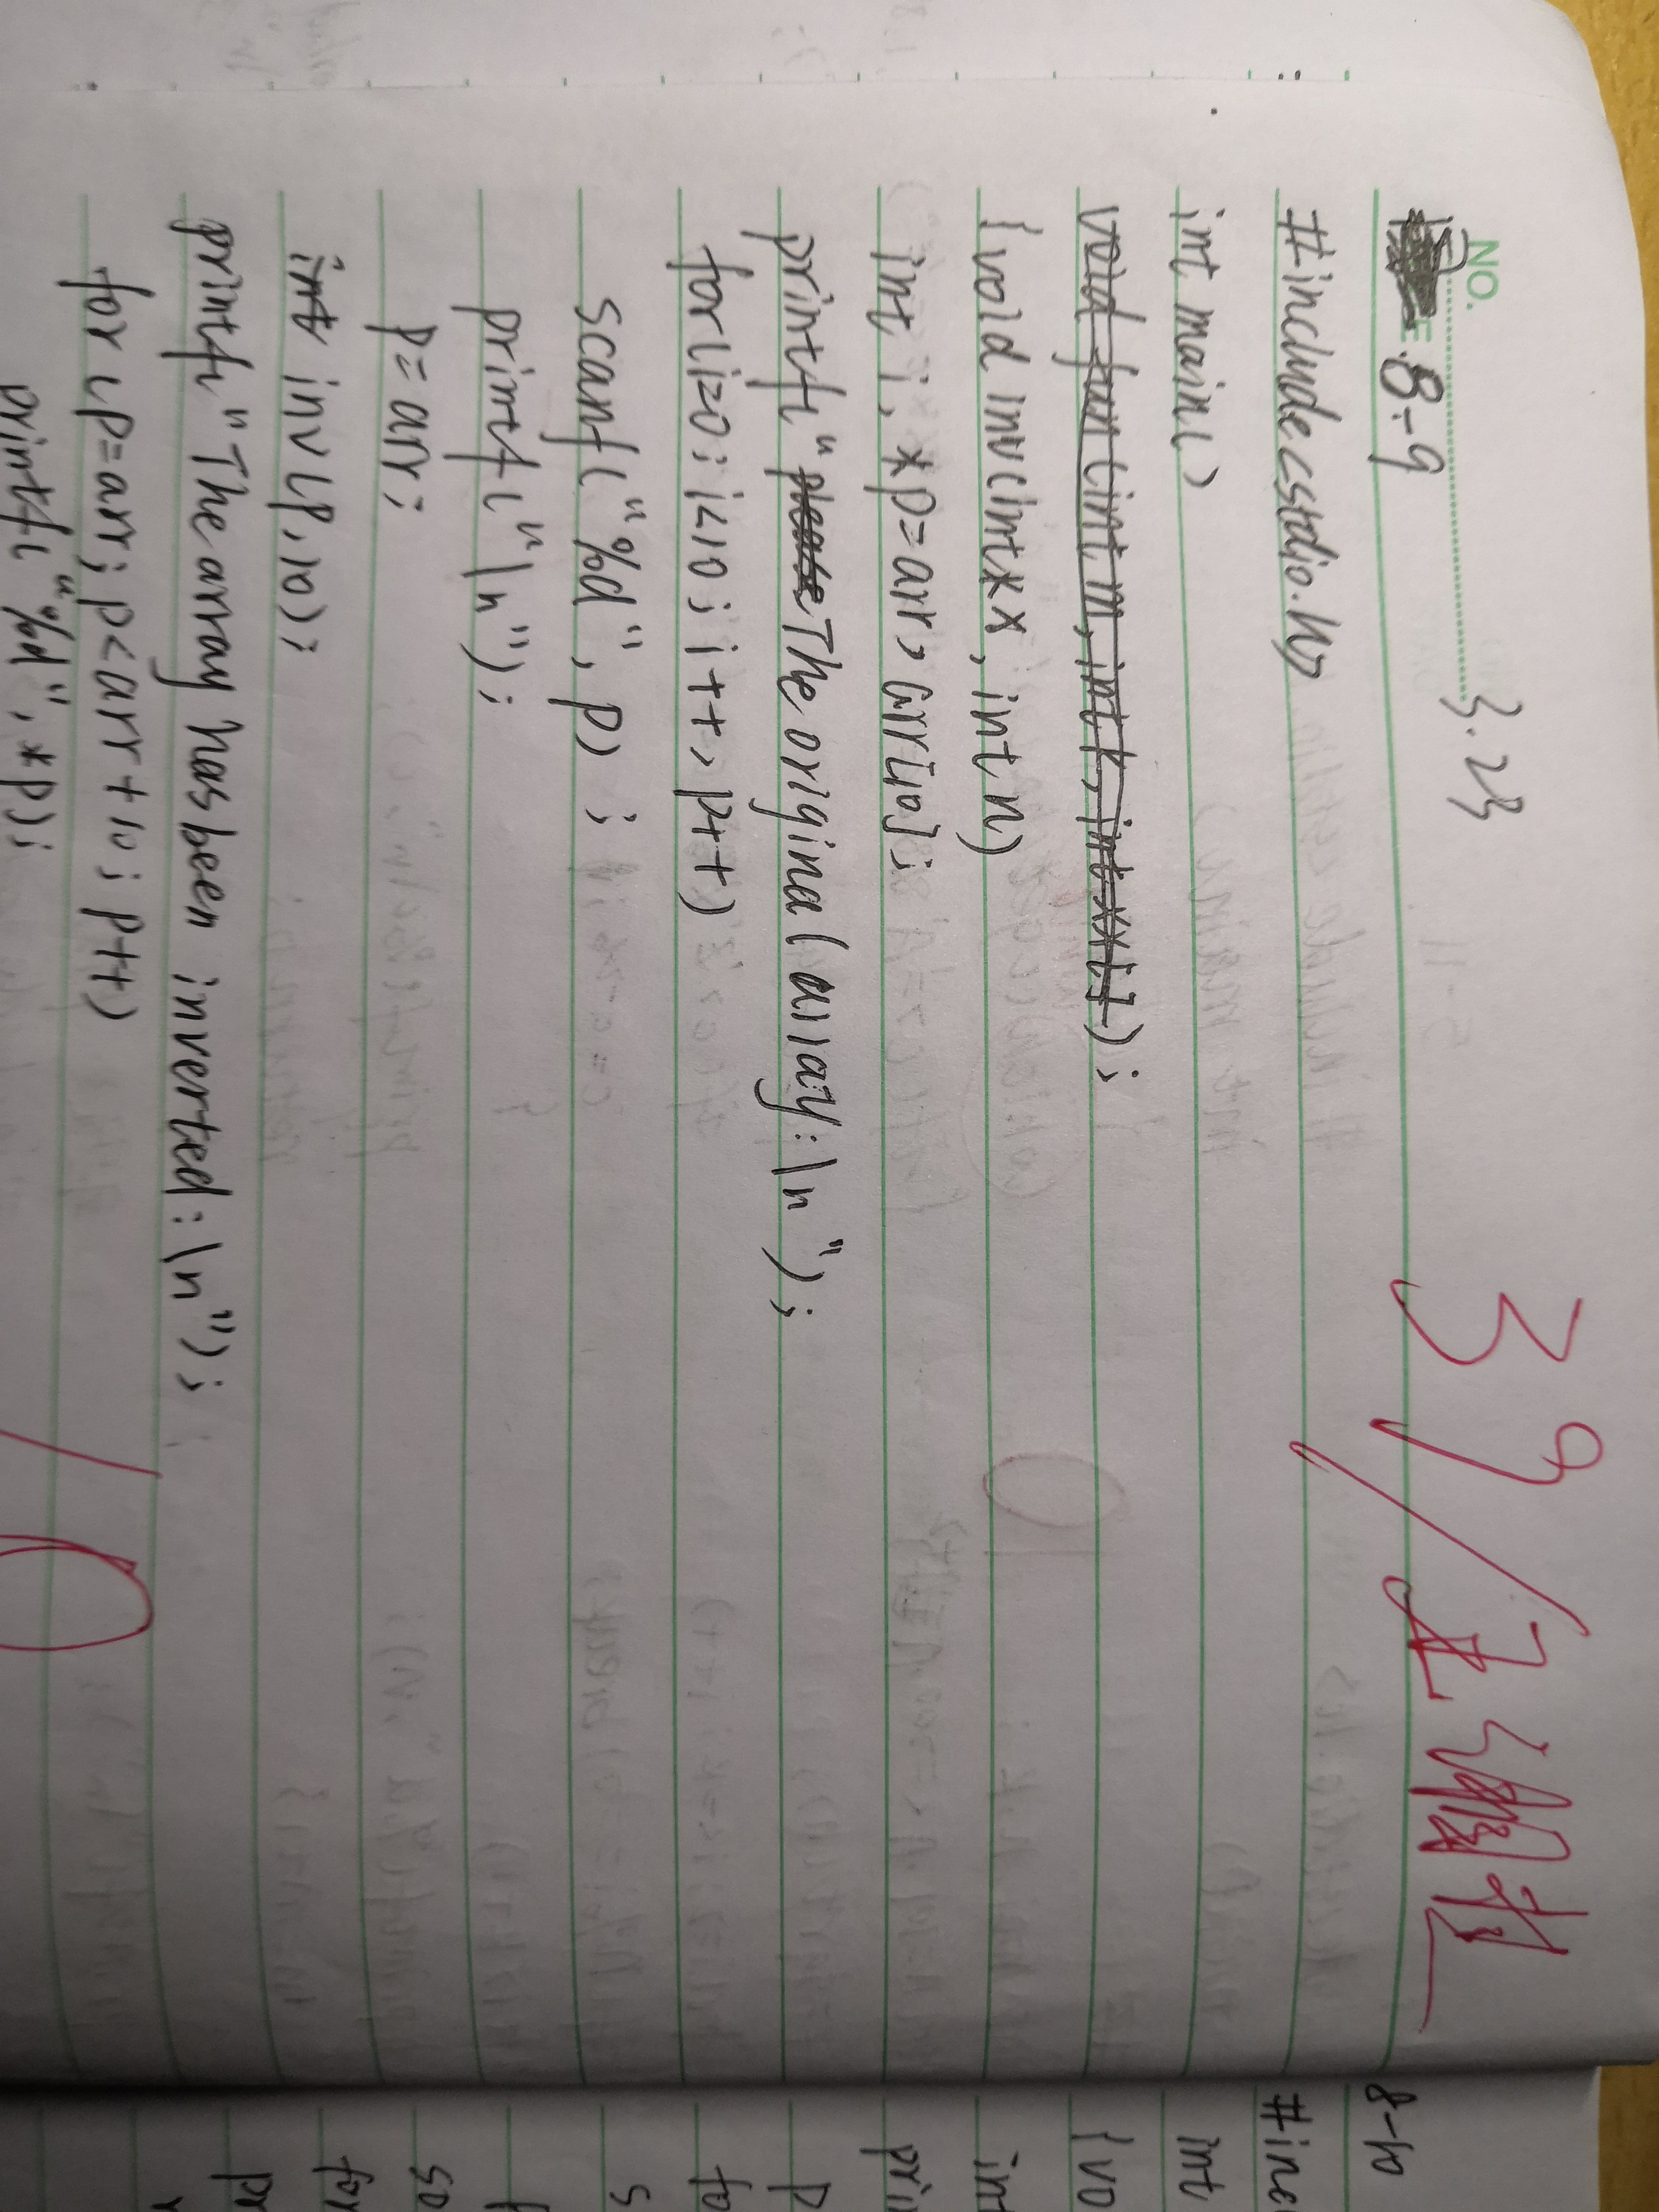 NO.
3.23
39/
8-9
#include<stdio.h>
int main()
void fun(int m,int k,int *x[]);
{void inv(int*x,int n)
int i,*p=arr,arr[10];
printf("The original array:\n");
for(i=0;i<10;i++,p++)
scanf("%d",p);
printf("\n");
p=arr;
int inv(p,10);
printf("The array has been inverted:\n");
for(p=arr;p<arr+10;p++)
printf("%d",*p);
8-10
#inc
int
{vo
int
pri
p
fo
s